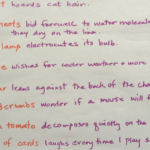 t hoards cat hair.
heets bid farewell to water molecules
they dry on the line.
lamp electrocutes its bulb.
e wishes for cooler weather + more
ar leans against the back of the cha
dcrumbs wonder if a mouse will f
n tomato decomposes quietly on the
of cards laughs every time I play s